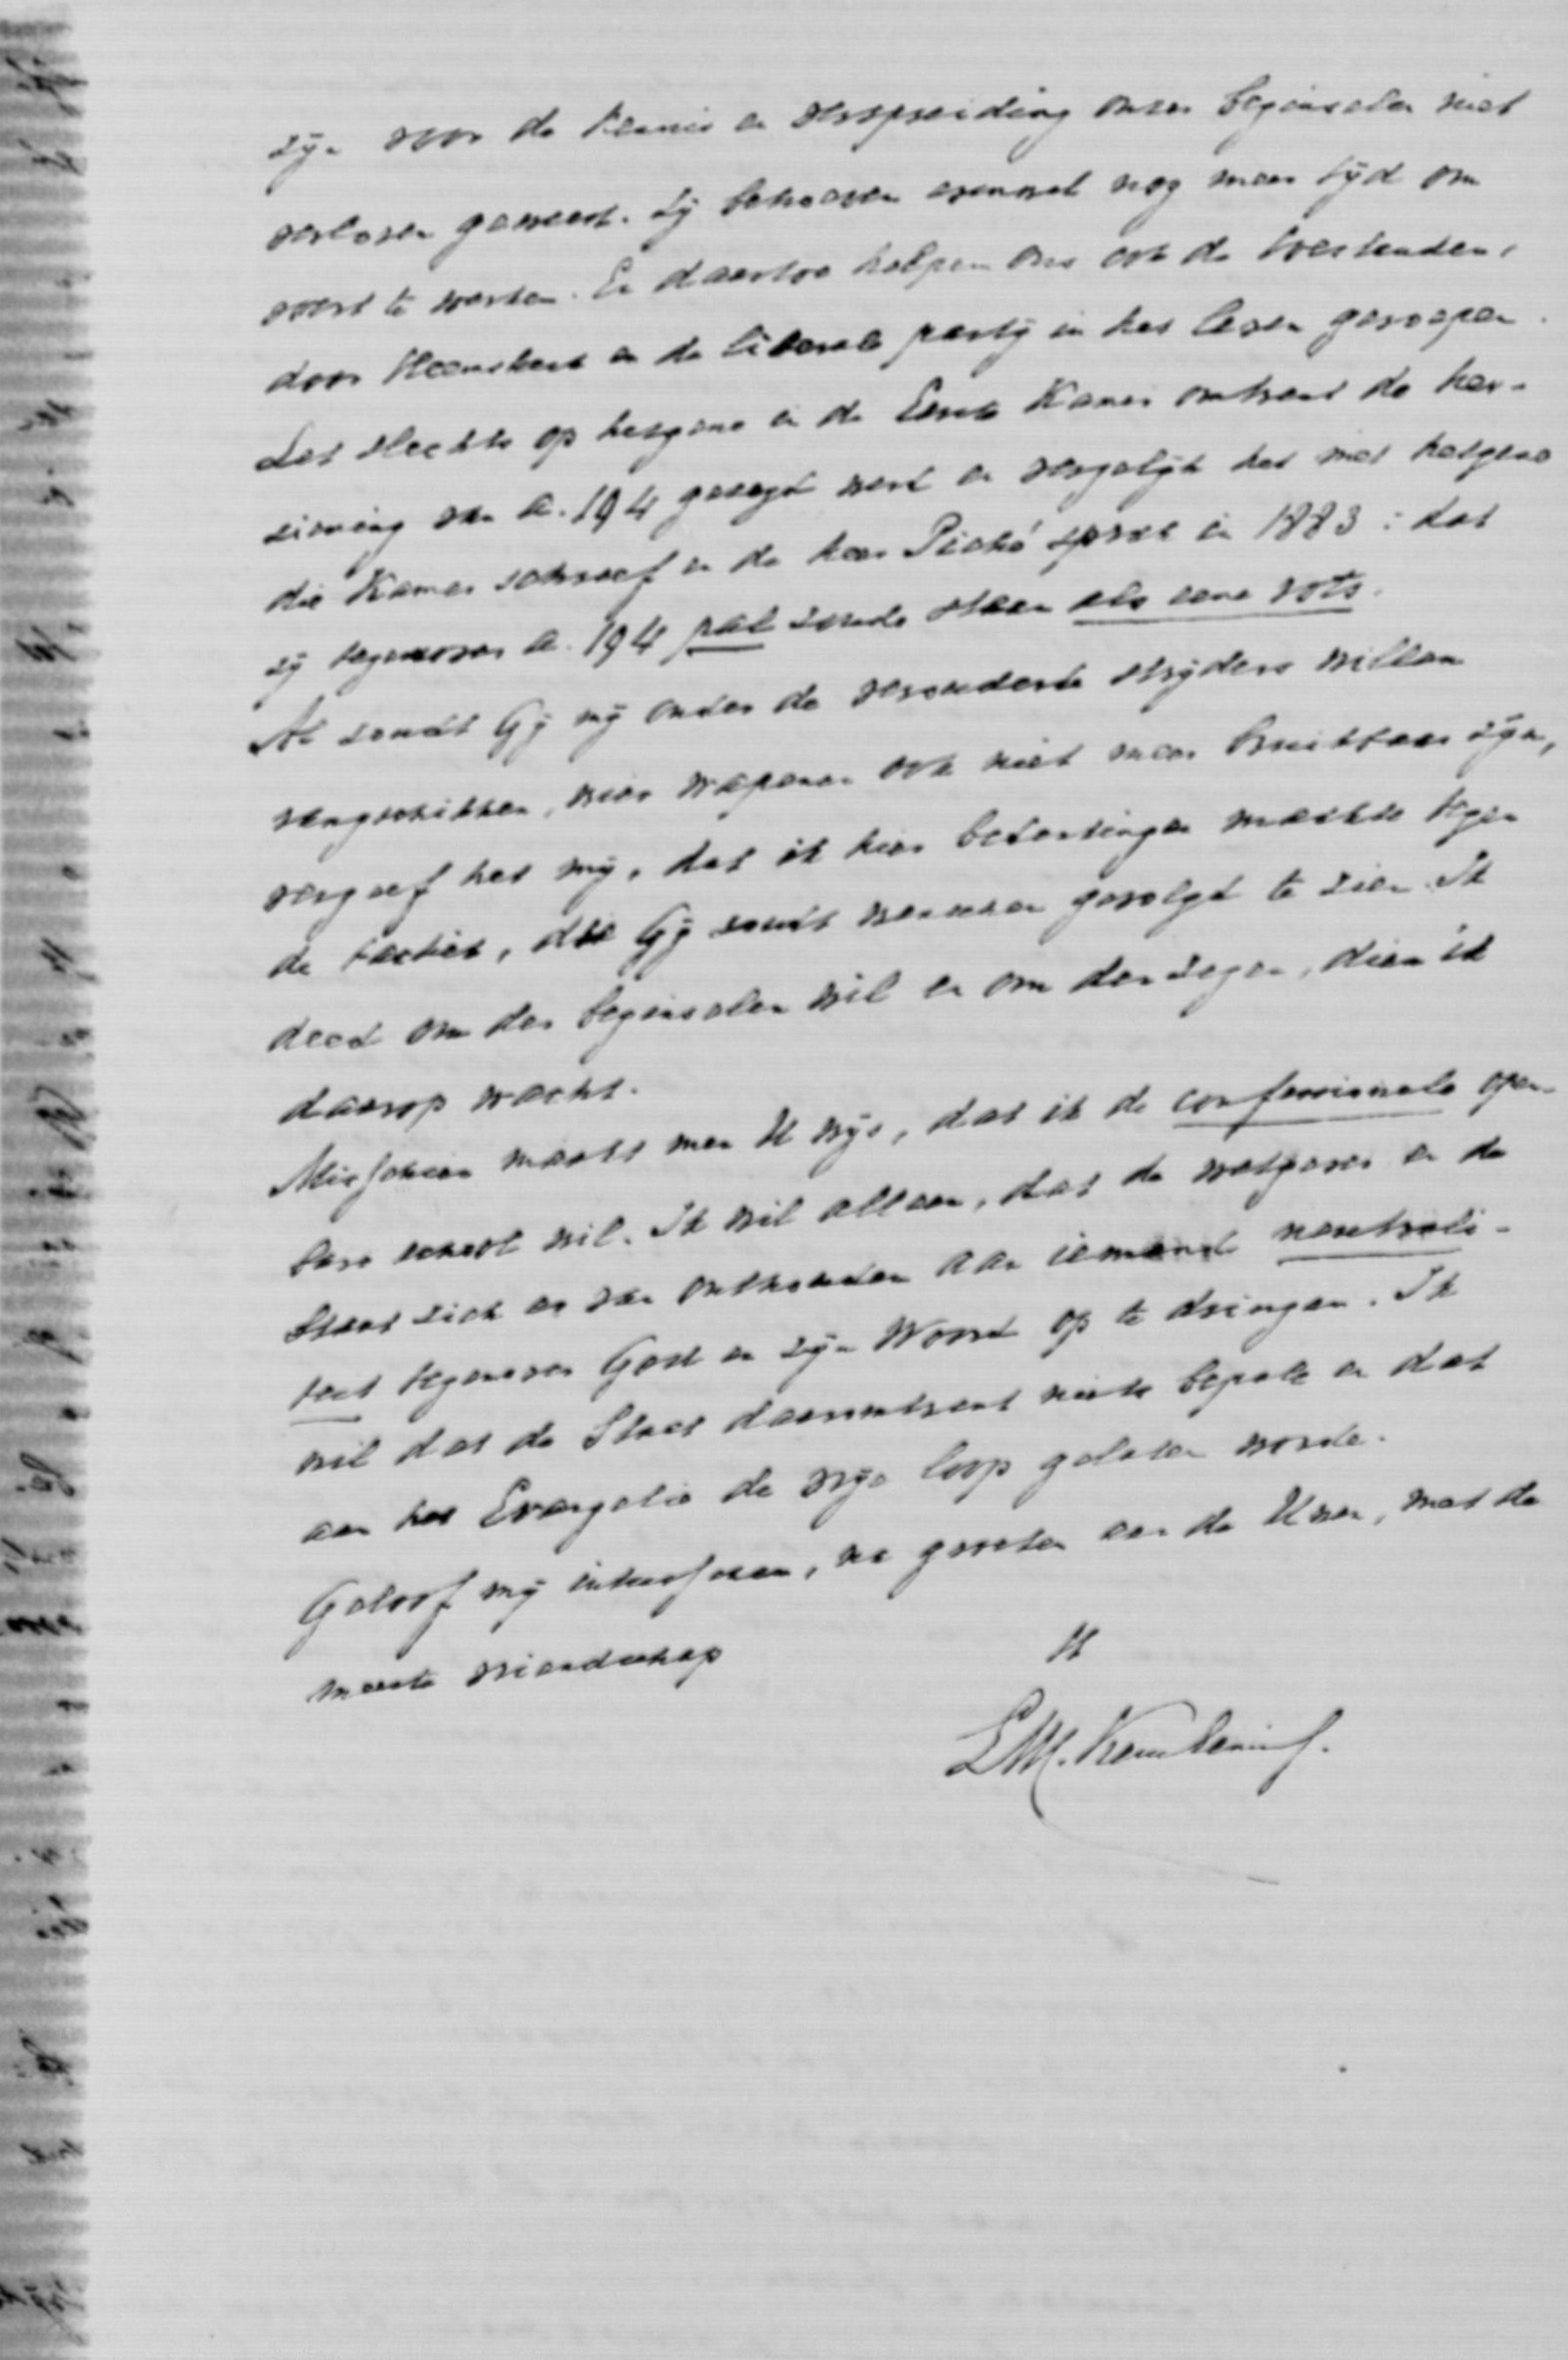 zijn voor de kennis en verspreiding onzer beginselen niet
verloren geweest. Zij behoeven evenwel nog meer tijd om
voort te werken. En daartoe helpen ons ook de toestanden,
door Heemskerk en de liberale partij in het leven geroepen.
Let slechts op hetgene in de Eerste Kamer omtrent de her-
ziening van a. 194 gezegd werd en vergelijk het met hetgene
die Kamer schreef en de heer Pické sprak in 1883: dat
zij tegenover a. 194 pal zoude staan als eene rots.
Al zoudt Gij mij onder de verouderde strijders willen
rangschikken, wier wapenen ook niet meer bruikbaar zijn,
vergeef het mij, dat ik hier bedenkingen maakte tegen
de tactiek, die Gij zoudt wenschen gevolgd te zien. Ik
deed om der beginselen wil en om den zegen, dien ik
daarop wacht.
Misschien maakt men U wijs, dat ik de confessionele open-
bare school wil. Ik wil alleen, dat de wetgever en de
Staat zich er van onthouden aan iemand neutrali-
teit tegenover God en zijn Woord op te dringen. Ik
wil dat de Staat daaromtrent niets bepale en dat
aan het Evangelie de vrije loop gelaten worde.
Geloof mij intusschen, na groeten aan de Uwen, met de
meeste vriendschap
U
L.W.C. Keuchenius.